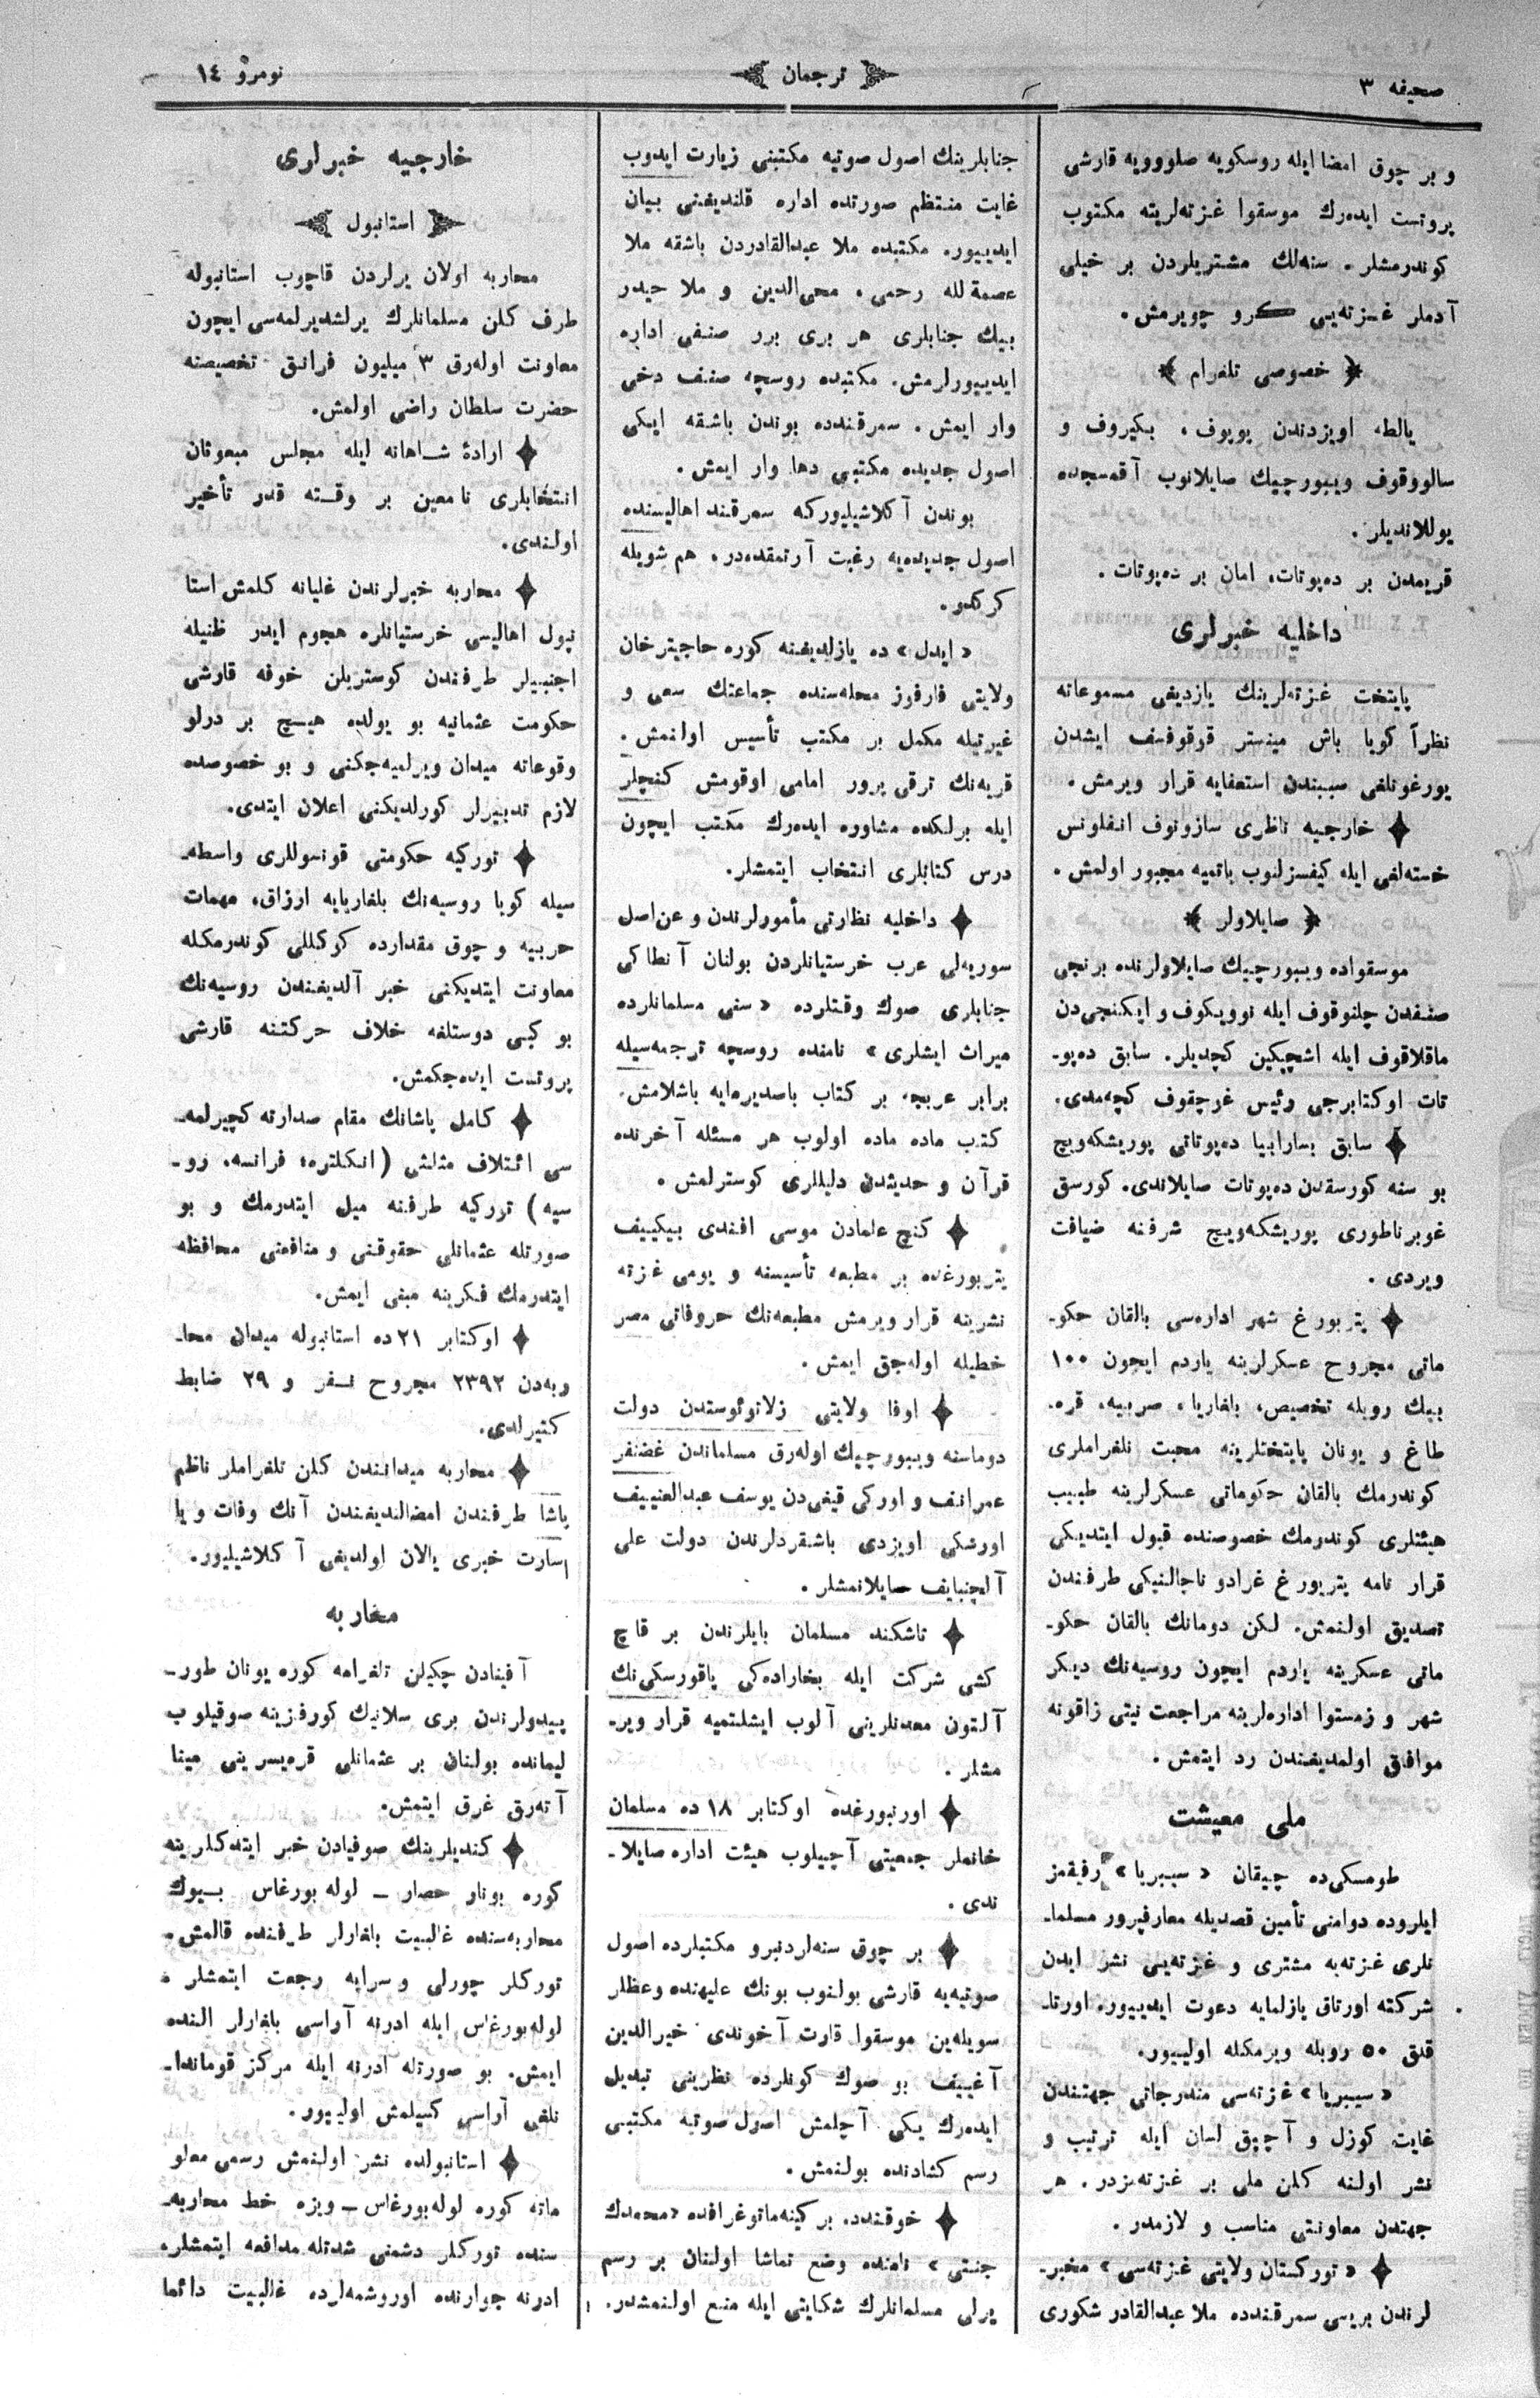 صحیفه ٣
ترجمان
نومرو ١٤
و بر چوق امضا ایله روسکویه صلوویه قارشی
پروتست ایدەرك موسقوا غزتەلرینه مکتوب
کوندرمشلر. سنەلك مشتریلردن بر خیلی
آدملر غزتەیی کرو چویرمش.
﴿ خصوصی تلغرام ﴾
یالطه اویزدندن پوپوف، بکیروف و
سالووقوف ویبورچیك صایلانوب آقمسجده
یوللاندیلر.
قریمدن بر دەپوتات، امان بر دەپوتات.
داخلیه خبرلری
پایتخت غزتەلرینك یازدیغی مسموعاته
نظراً کویا باش مینستر قوقوفسف ایشدن
یورغونلغی سببندن استعفایه قرار ویرمش.
خارجیه ناظری سازونوف انفلونس
خستەلغی ایله کیفسزلنوب یاتمیه مجبور اولمش.
﴿ صایلاولر ﴾
موسقواده ویبورچیك صایلاولرنده برنجی
صنفدن چلنوقوف ایله نوویکوف و ایکنجی دن
ماقلاقوف ایله اشچپکین کچدیلر. سابق دەپو۔
تات اوکتابرجی رئیس غرچقوف کچەمدی.
سابق بسارابیا دەپوتاتی پوریشکەویچ
بو سنه کورسقدن دەپوتات صایلاندی. کورسق
غوبرناطوری پوریشکەویچ شرفنه ضیافت
ویردی.
پتربورغ شهر ادارەسی بالقان حکو۔
ماتی مجروح عسکرلرینه یاردم ایچون ١٠٠
بیك روبله تخصیص، بلغاریا، صربیه، قره۔
طاغ و یونان پایتختلرینه محبت تلغراملری
کوندرمك بالقان حکوماتی عسکرلرینه طبیب
هیئتلری کوندرمك خصوصنده قبول ایتدیکی
قرار نامه پتربورغ غرادو ناچالنیکی طرفندن
تصدیق اولنمش. لکن دومانك بالقان حکو۔
ماتی عسکرینه یاردم ایچون روسیەنك دیکر
شهر و زمستوا ادارەلرینه مراجعت نیتی زاقونه
موافق اولمدیغندن رد ایتمش.
ملی معیشت
طومسکی ده چیقان « سیبریا » رفیقمز
ایلروده دوامنی تأمین قصدیله معارفپرور مسلما۔
نلری غزتەیه مشتری و غزتەیی نشر ایدن
شرکته اورتاق یازلمایه دعوت ایدییور. اورتا۔
قلق ٥٠ روبله ویرمکله اولییور.
« سیبریا » غزتەسی مندرجاتی جهتندن
غایت کوزل و آچیق لسان ایله ترتیب و
نشر اولنه کلن ملی بر غزتەمزدر. هر
جهتدن معاونتی مناسب و لازمدر.
« تورکستان ولایتی غزتەسی » مخبر۔
لرندن بریسی سمرقندده ملا عبدالقادر شکوری
جنابلرینك اصول صوتیه مکتبنی زیارت ایدوب
غایت منتظم صورتده اداره قلندیغنی بیان
ایدییور. مکتبده ملا عبدالقادردن باشقه ملا
عصمة لله رحمی، محی الدین و ملا حیدر
بیك جنابلری هر بری برر صنفی اداره
ایدییورلرمش. مکتبده روسچه صنف دخی
وار ایمش. سمرقندده بوندن باشقه ایکی
اصول جدیده مکتبی دها وار ایمش.
بوندن آکلاشیلیورکه سمرقند اهالیسنده
اصول جدیدەیه رغبت آرتمقدەدر. هم شویله
کرکدو.
« ایدل » ده یازلدیغنه کوره حاجیترخان
ولایتی فارفوز محلەسنده جماعتك سعی و
غیرتیله مکمل بر مکتب تأسیس اولنمش.
قریەنك ترقی پرور امامی اوقومش کنچلر
ایله برلکده مشاوره ایدەرك مکتب ایچون
درس کتابلری انتخاب ایتمشلر.
داخلیه نظارتی مأمورلرندن و عن اصل
سوریەلی عرب خرستیانلردن بولنان آنطاکی
جنابلری صوك وقتلرده « سنی مسلمانلرده
میراث ایشلری » نامنده روسچه ترجمەسیله
برابر عربچه بر کتاب باصدیرمایه باشلامش.
کتب ماده ماده اولوب هر مسئله آخرنده
قرآن و حدیثدن دلیللری کوسترلمش.
کنج علمادن موسی افندی بیکییف
پتربورغده بر مطبعه تأسیسنه و یومی غزته
نشرینه قرار ویرمش مطبعەنك حروفاتی مصر
خطیله اولەجق ایمش.
اوفا ولایتی زلاتوئوستدن دولت
دوماسنه ویبورچیك اولەرق مسلماندن غضنفر
عمرانف و اورکی قیغی دن یوسف عبدالغنییف
اورشکی اویزدی باشقردلرندن دولت علی
آلچنبایف صایلانمشلر.
تاشکند مسلمان بایلرندن بر قاچ
کشی شرکت ایله بخارادەکی یاقورسکی نك
آلتون معدنلرینی آلوب ایشلتمیه قرار ویر۔
مشلر.
اورنبورغده اوکتابر ١٨ ده مسلمان
خانملر جمعیتی آچیلوب هیئت اداره صایلا۔
ندی.
بر چوق سنەلردنبرو مکتبلرده اصول
صوتیەیه قارشی بولنوب بونك علیهنده وعظلر
سویلەین موسقوا قارت آخوندی خیرالدین
آغییف بو صوك کونلرده نظرینی تبدیل
ایدەرك یکی آچلمش اصول صوتیه مکتبی
رسم کشادنده بولنمش.
خوقندده بر کینەماتوغرافده «محمدك
جنتی » نامنده وضع تماشا اولنان بر رسم
یرلی مسلمانلرك شکایتی ایله منع اولنمشدر.
خارجیه خبرلری
استانبول
محاربه اولان یرلردن قاچوب استانبوله
طرف کلن مسلمانلرك یرلشدیرلمەسی ایچون
معاونت اولەرق ٣ میلیون فرانق تخصیصنه
حضرت سلطان راضی اولمش.
ارادهٔ شاهانه ایله مجلس مبعوثان
انتخابلری نامعین بر وقته قدر تأخیر
اولندی.
محاربه خبرلرندن غلیانه کلمش استا
نبول اهالیسی خرستیانلره هجوم ایدر ظنیله
اجنبیلر طرفندن کوستریلن خوفه قارشی
حکومت عثمانیه بو یولده هیچ بر درلو
وقوعاته میدان ویرلمیەجکنی و بو خصوصده
لازم تدبیرلر کورلدیکنی اعلان ایتدی.
تورکیه حکومتی قونسوللری واسطه۔
سیله کویا روسیەنك بلغاریایه ارزاق، مهمات
حربیه و چوق مقدارده کوکللی کوندرمکله
معاونت ایتدیکنی خبر آلدیغندن روسیەنك
بو کبی دوستلغه خلاف حرکتنه قارشی
پروتست ایدەجکمش.
کامل پاشانك مقام صدارته کچیرلمه۔
سی ائتلاف مثلثی (انکلتره، فرانسه، رو۔
سیه) تورکیه طرفنه میل ایتدرمك و بو
صورتله عثمانلی حقوقنی و منافعنی محافظه
ایتدرمك فکرینه مبنی ایمش.
اوکتابر ٢١ ده استانبوله میدان محا۔
ربەدن ٢٣٩٢ مجروح نفر و ٢٩ ضابط
کتیرلدی.
محاربه میدانندن کلن تلغراملر ناظم
پاشا طرفندن امضالندیغندن آنك وفات و یا
اسارت خبری یالان اولدیغی آکلاشیلیور.
مخاربه
آفینادن چکیلن تلغرامه کوره یونان طور۔
پیدولرندن بری سلانیك کورفزینه صوقیلوب
لیمانده بولنان بر عثمانلی قرەیسرینی مینا
آتەرق غرق ایتمش.
کندیلرینك صوفیادن خبر ایتدکلرینه
کوره بونار حصار ـ لوله بورغاس بیوك
محاربەسنده غالبیت بلغارلر طرفنده قالمش.
تورکلر چورلی و سرایه رجعت ایتمشلر.
لولەبورغاس ایله ادرنه آراسی بلغارلر النده
ایمش. بو صورتله ادرنه ایله مرکز قوماندا۔
نلغی آراسی کسیلمش اولییور.
استانبولده نشر اولنمش رسمی معلو
ماته کوره لولەبورغاس ـ ویزه خط محاربه۔
سنده تورکلر دشمنی شدتله مدافعه ایتمشلر.
ادرنه جوارنده اوروشمەلرده غالبیت دائما